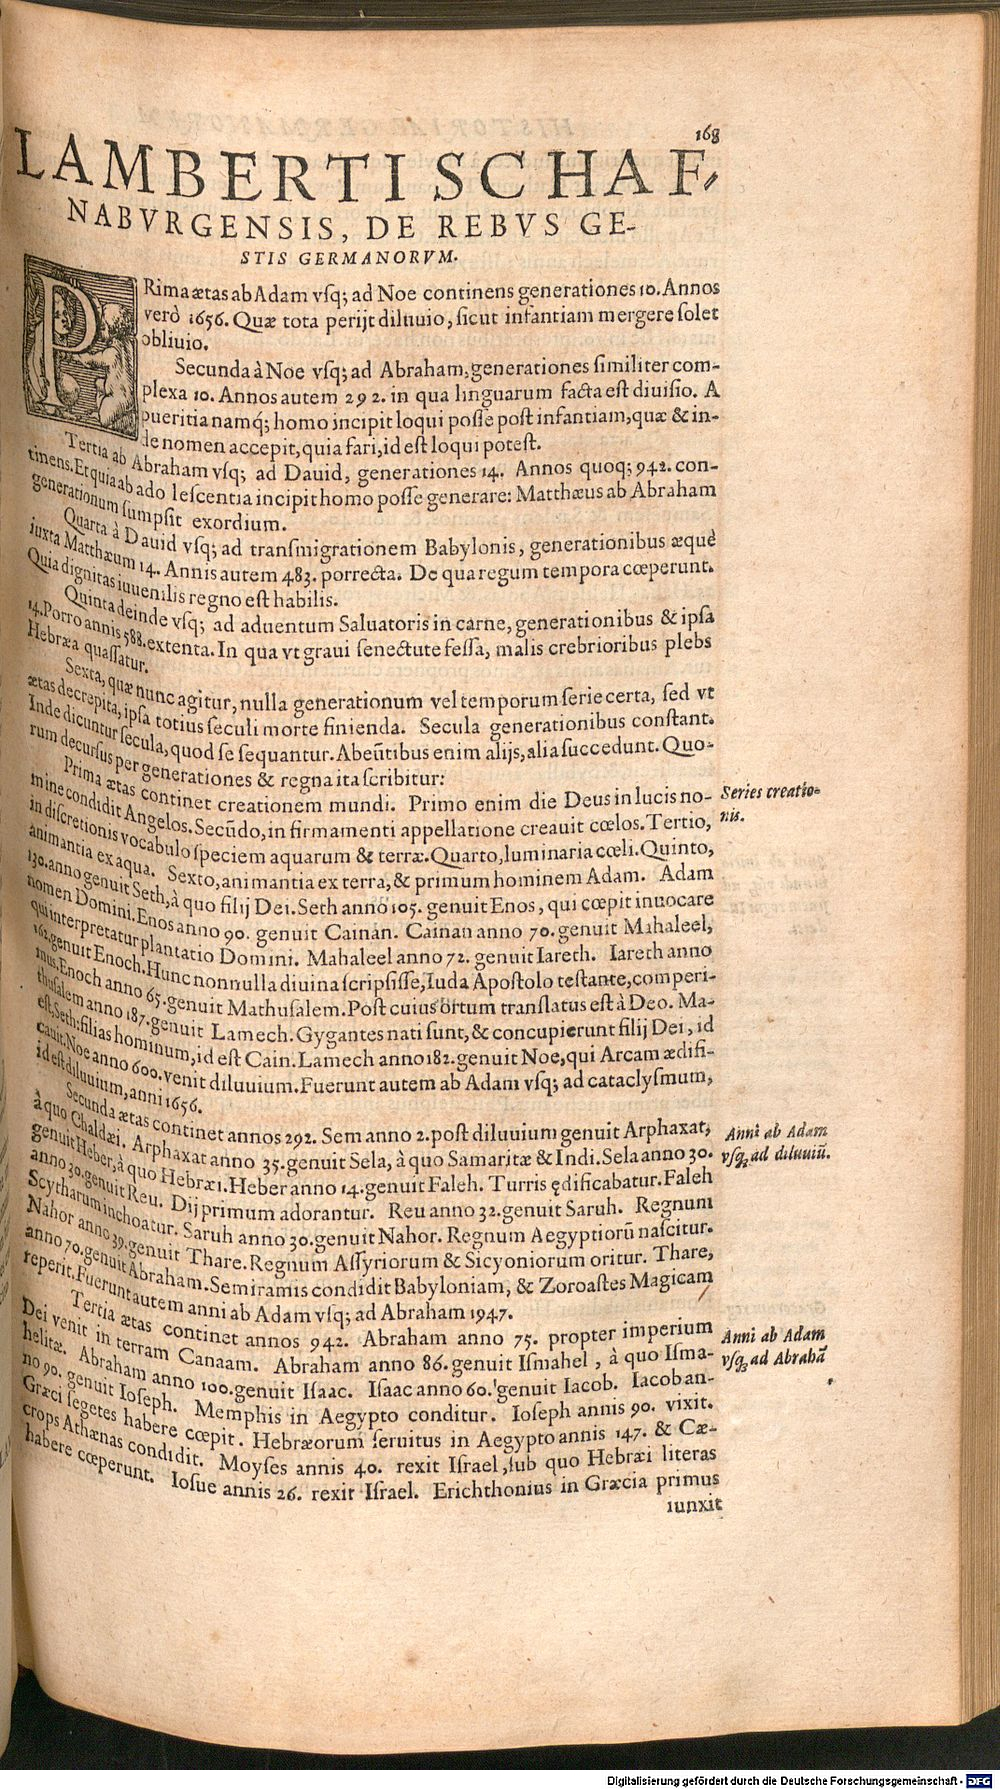 168
LAMBERTI SCHAF-
NABVRGENSIS, DE REBVS GE-
STIS GERMANORVM.
PRima ætas ab Adam vsq; ad Noe continens generationes 10. Annos
verò 1656. Quæ tota perijt diluuio, sicut infantiam mergere solet
obliuio.
Secunda à Noe vsq; ad Abraham, generationes similiter com-
plexa 10. Annos autem 292. in qua linguarum facta est diuisio. A
pueritia namq; homo incipit loqui posse post infantiam, quæ & in-
de nomen accepit, quia fari, id est loqui potest.
Tertia ab Abraham vsq; ad Dauid, generationes 14. Annos quoq; 942. con-
tinens. Et quia ab ado lescentia incipit homo posse generare: Matthæus ab Abraham
generationum sumpsit exordium.
Quarta à Dauid vsq; ad transmigrationem Babylonis, generationibus æquè
iuxta Matthæum 14. Annis autem 483. porrecta. De qua regum tempora cœperunt.
Quia dignitas iuuenilis regno est habilis.
Quinta deinde vsq; ad aduentum Saluatoris in carne, generationibus & ipsa
14. Porro annis 588. extenta. In qua vt graui senectute fessa, malis crebrioribus plebs
Hebræa quassatur.
Sexta, quæ nunc agitur, nulla generationum vel temporum serie certa, sed vt
ætas decrepita, ipsa totius seculi morte finienda. Secula generationibus constant.
Inde dicuntur secula, quod se sequantur. Abeũtibus enim alijs, alia succedunt. Quo-
rum decursus per generationes & regna ita scribitur:
Prima ætas continet creationem mundi. Primo enim die Deus in lucis no-
mine condidit Angelos. Secũdo, in firmamenti appellatione creauit cœlos. Tertio,
in discretionis vocabulo speciem aquarum & terræ. Quarto, luminaria cœli. Quinto,
animantia ex aqua. Sexto, animantia ex terra, & primum hominem Adam. Adam
130. anno genuit Seth, à quo filij Dei. Seth anno 105. genuit Enos, qui cœpit inuocare
nomen Domini. Enos anno 90. genuit Cainan. Cainan anno 70. genuit Mahaleel,
qui interpretatur plantatio Domini. Mahaleel anno 72. genuit Iareth. Iareth anno
162. genuit Enoch. Hunc nonnulla diuina scripsisse, Iuda Apostolo testante, comperi-
mus. Enoch anno 65. genuit Mathusalem. Post cuius ortum translatus est à Deo. Ma-
thusalem anno 187. genuit Lamech. Gygantes nati sunt, & concupierunt filij Dei, id
est, Seth: filias hominum, id est Cain. Lamech anno 182. genuit Noe, qui Arcam ædifi-
cauit. Noe anno 600. venit diluuium. Fuerunt autem ab Adam vsq; ad cataclysmum,
id est diluuium, anni 1656.
Secunda ætas continet annos 292. Sem anno 2. post diluuium genuit Arphaxat,
à quo Chaldæi. Arphaxat anno 35. genuit Sela, à quo Samaritæ & Indi. Sela anno 30.
genuit Heber, à quo Hebræi. Heber anno 14. genuit Faleh. Turris ędificabatur. Faleh
anno 30. genuit Reu. Dij primum adorantur. Reu anno 32. genuit Saruh. Regnum
Scytharum inchoatur. Saruh anno 30. genuit Nahor. Regnum Aegyptiorũ nascitur.
Nahor anno 39. genuit Thare. Regnum Assyriorum & Sicyoniorum oritur. Thare,
anno 70. genuit Abraham. Semiramis condidit Babyloniam, & Zoroastes Magicam
reperit. Fuerunt autem anni ab Adam vsq; ad Abraham 1947.
Tertia ætas continet annos 942. Abraham anno 75. propter imperium
Dei venit in terram Canaam. Abraham anno 86. genuit Ismahel, à quo Isma-
helitæ. Abraham anno 100. genuit Isaac. Isaac anno 60. genuit Iacob. Iacob an-
no 90. genuit Ioseph. Memphis in Aegypto conditur. Ioseph annis 90. vixit.
Græci segetes habere cœpit. Hebræorum seruitus in Aegypto annis 147. & Cæ-
crops Athænas condidit. Moyses annis 40. rexit Israel, sub quo Hebræi literas
habere cœperunt. Iosue annis 26. rexit Israel. Erichthonius in Græcia primus
iunxit
Series creatio-
nis.
Anni ab Adam
vsq; ad diluuiũ.
Anni ab Adam
vsq; ad Abrahã
Digitalisierung gefördert durch die Deutsche Forschungsgemeinschaft - DFG